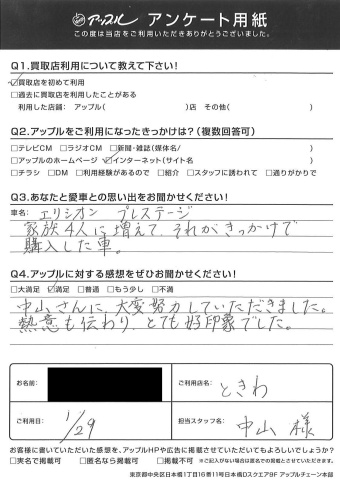 アップル アンケート用紙
この度は当店をご利用いただきありがとうございました。
Q1.買取店利用について教えて下さい!
☑買取店を初めて利用
□過去に買取店を利用したことがある
利用した店舗: アップル( )店 その他( )
Q2.アップルをご利用になったきっかけは?(複数回答可)
□テレビCM □ラジオCM □新聞・雑誌(媒体名/ )
□アップルのホームページ ☑インターネット(サイト名 )
□チラシ □DM □利用経験があるので □紹介 □スタッフに誘われて □通りがかりで
Q3.あなたと愛車との思い出をお聞かせください!
車名: エリシオン プレステージ
家族4人に増えて、それがきっかけで
購入した車。
Q4.アップルに対する感想をぜひお聞かせください!
□大満足 ☑満足 □普通 □もう少し □不満
中山さんに、大変努力していただきました。
熱意も伝わり、とても好印象でした。
お名前:
ご利用店名: ときわ
ご利用日: 1/29
担当スタッフ名: 中山 様
お客様に書いていただいた感想を、アップルHPや広告に掲載させていただいてもよろしいでしょうか?
□実名で掲載可 □匿名なら掲載可 □掲載不可 ※ご記入がない場合は匿名での掲載とさせていただきます。
東京都中央区日本橋1丁目16番11号日本橋Dスクエア9F アップルチェーン本部